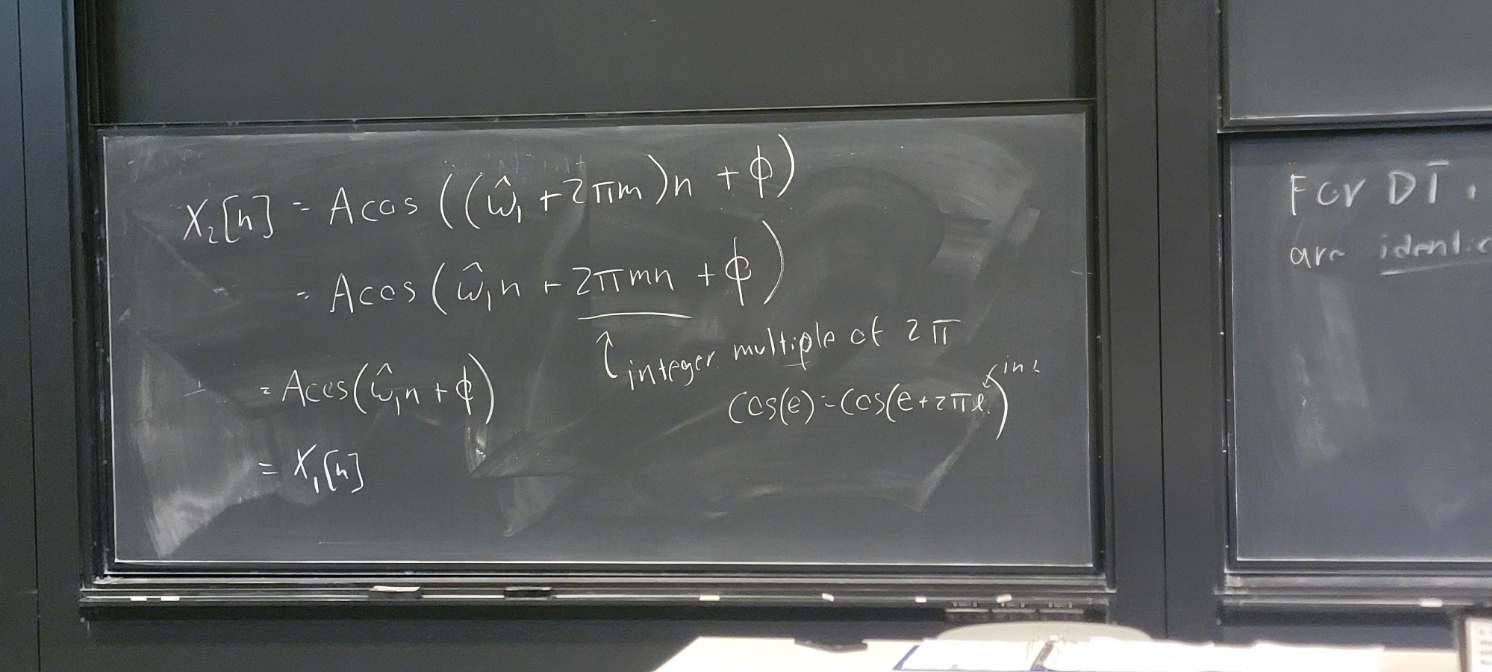 X₂[n] = Acos((ω̂₁ + 2πm)n + ϕ)
= Acos(ω̂₁n + 2πmn + ϕ)
integer multiple of 2π
= Acos(ω̂₁n + ϕ)
cos(θ) = cos(θ + 2πl)
= X₁[n]
For DT,
are